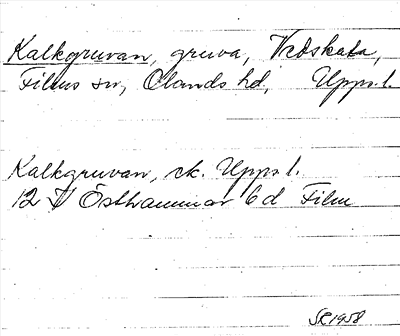 Kalkgruvan, gruva, Vedskata,
Films sn, Olands hd, Upps. l.
Kalkgruvan, ek. Upps l.
12 I Östhammar 6d Film
SR 1958